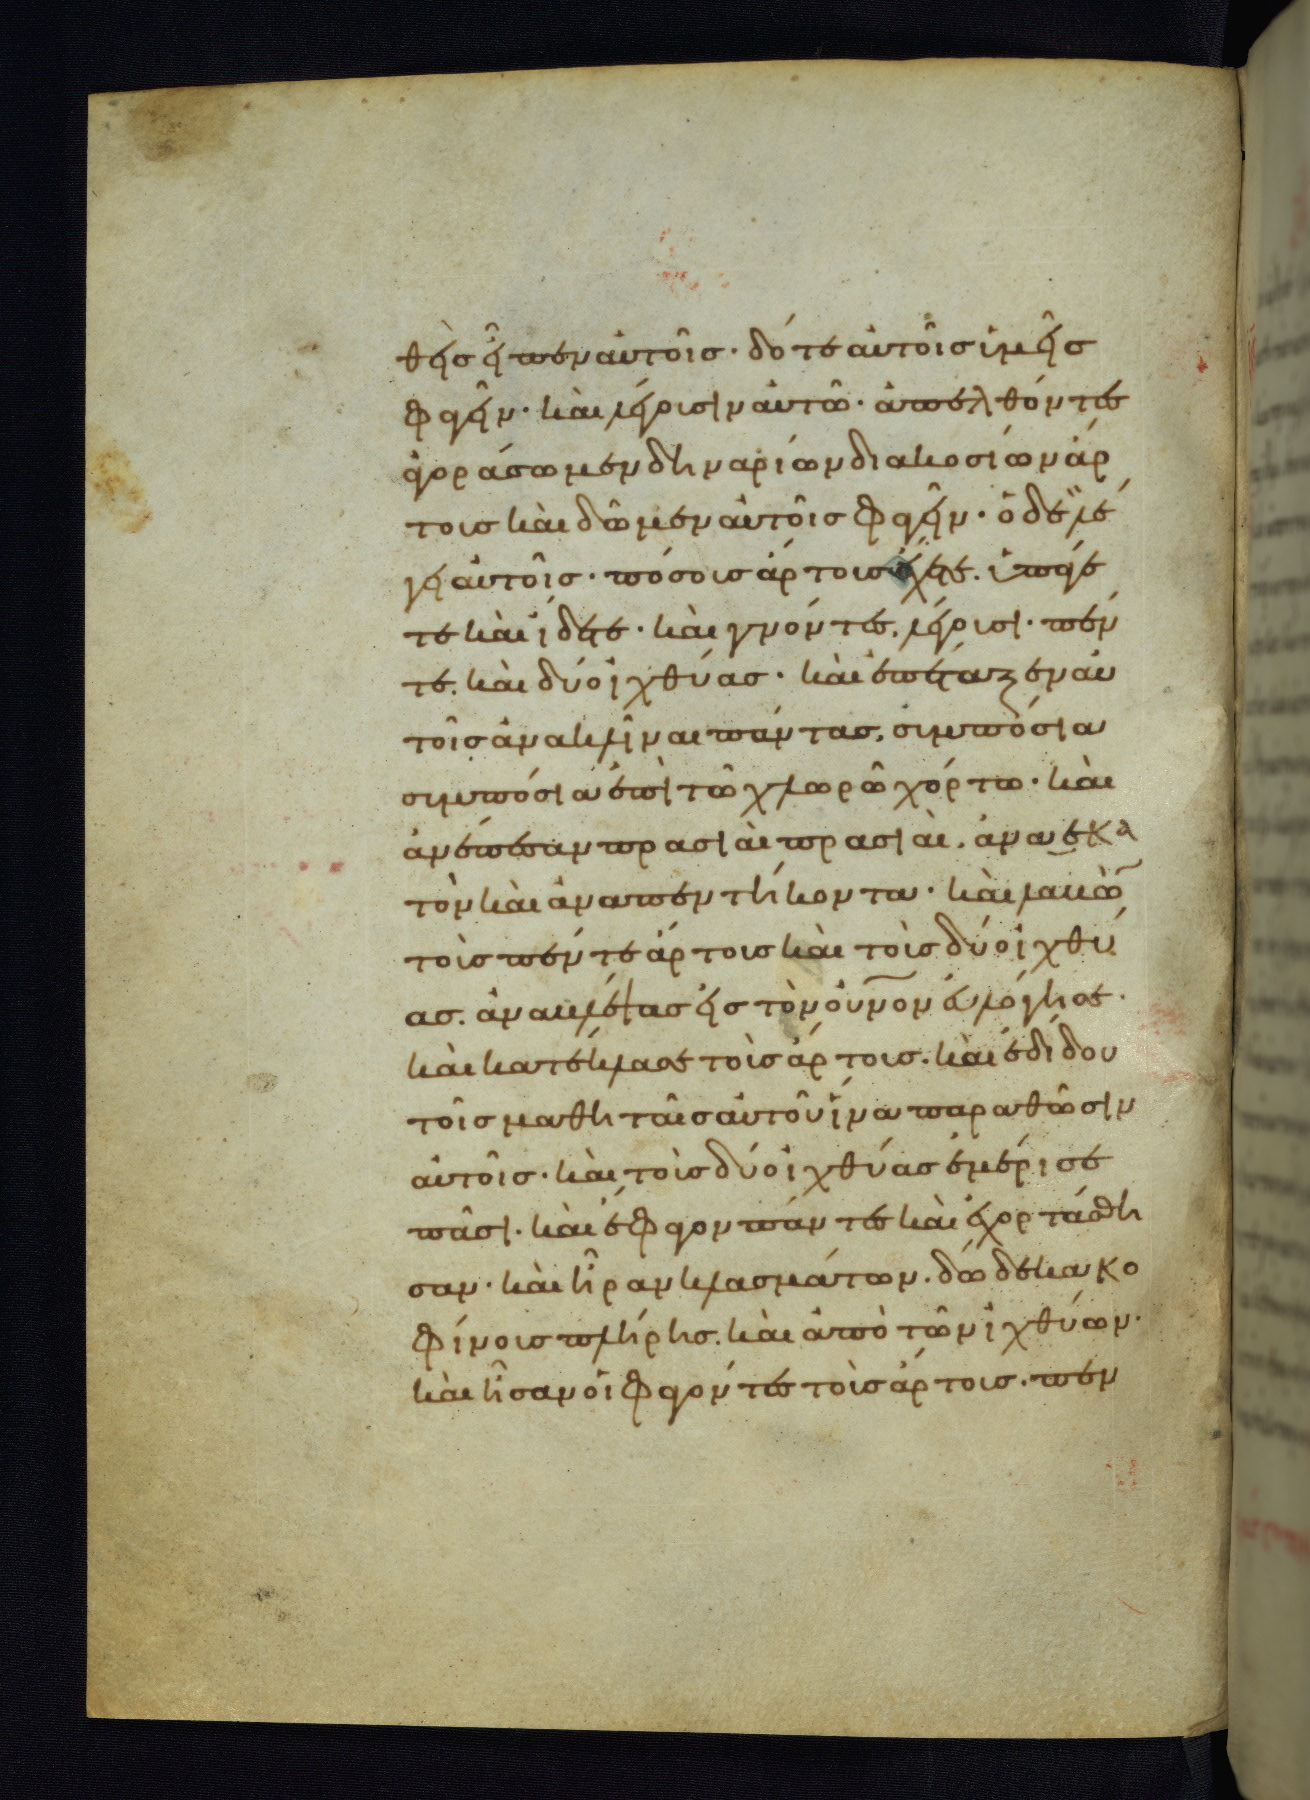 θεὶς εἶπεν αὐτοῖς· δότε αὐτοῖς ὑμεῖς
φαγεῖν· καὶ λέγουσιν αὐτῶ· ἀπελθόντες
ἀγοράσωμεν δηναρίων διακοσίων ἄρ
τους καὶ δῶμεν αὐτοῖς φαγεῖν· ὁ δὲ λέ
γει αὐτοῖς· πόσους ἄρτους ἔχετε. ὑπάγε
τε καὶ ἴδετε· καὶ γνόντες, λέγουσι· πέν
τε. καὶ δύο ἰχθύας· καὶ ἐπέταξεν αὐ
τοῖς ἀνακλῖναι πάντας, συμπόσια
συμπόσια ἐπὶ τῶ χλωρῶ χόρτω· καὶ
ἀνέπεσαν πρασιαὶ πρασιαὶ. ἀνα ἑκα
τὸν καὶ ἀνα πεντήκοντα· καὶ λαβὼ̅
τοὺς πέντε ἄρτους καὶ τοὺς δύο ἰχθύ
ας. ἀναβλέψας εἰς τὸν οὐν̅ον εὐλόγησε·
καὶ κατέκλασε τοὺς ἄρτους. καὶ ἐδίδου
τοῖς μαθηταῖς αὐτοῦ ἵνα παραθῶσιν
αὐτοῖς· καὶ τοὺς δύο ἰχθύας ἐμέρισε
πᾶσι. καὶ ἔφαγον πάντες καὶ ἐχορτάσθη
σαν· καὶ ἦραν κλασμάτων. δώδεκα κο
φίνους πλήρης. καὶ ἀπὸ τῶν ἰχθύων·
καὶ ἦσαν οἱ φαγόντες τοὺς ἄρτους. πεν